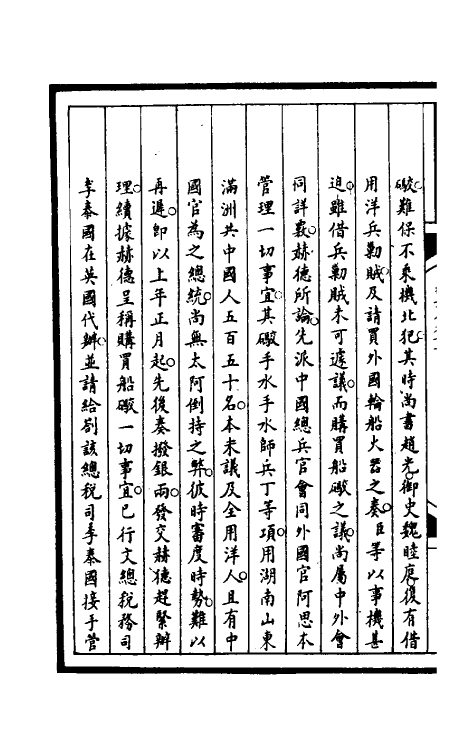 礮難保不乘機北犯其時尚書趙光御史魏睦庭復有借
用洋兵勦賊及請買外國輪船火器之奏臣等以事機甚
迫雖借兵勦賊未可遽議而購買船礮之議尚屬中外會
同詳覈赫德所論先派中國總兵官會同外國官阿思本
管理一切事宜其礮手水手水師兵丁等項用湖南山東
滿洲共中國人五百五十名本未議及全用洋人且有中
國官為之總統尚無太阿倒持之弊彼時審度時勢難以
再遲即以上年正月起先後奏撥銀兩發交赫德趕緊辦
理續據赫德呈稱購買船礮一切事宜已行文總稅務司
李泰國在英國代辦並請給劄該總稅司李泰國接手管